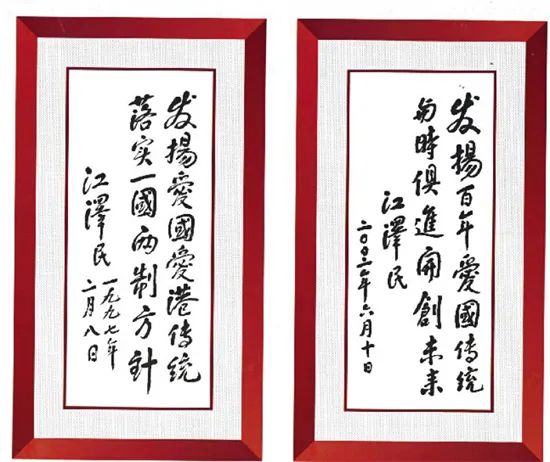 发揚愛國愛港传統
落实一國两制方針
江澤民
一九九七年
二月八日
发揚百年愛國傳統
与時俱進開創未来
江澤民
二〇〇二年六月十日